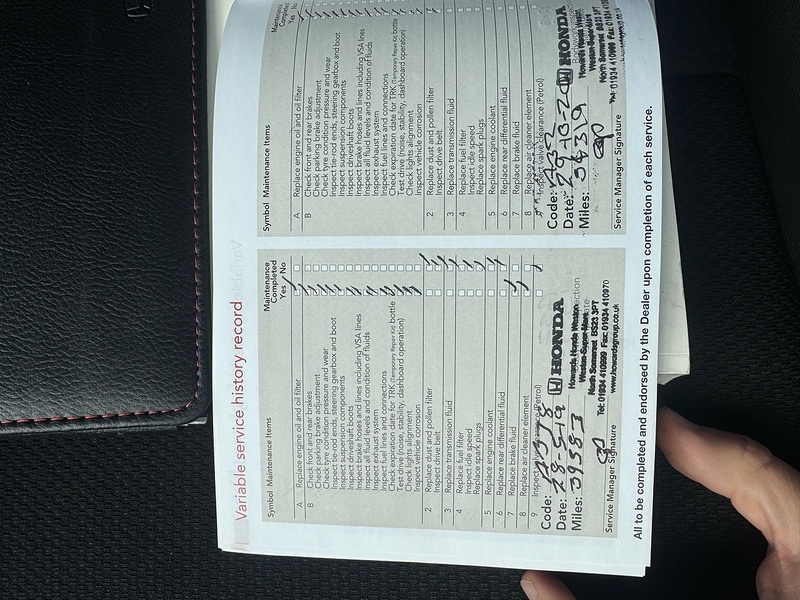 Variable service history record
Symbol Maintenance Items
Maintenance
Completed
Yes No
A Replace engine oil and oil filter
B Check front and rear brakes
Check parking brake adjustment
Check tyre condition pressure and wear
Inspect tie-rod ends, steering gearbox and boot
Inspect suspension components
Inspect driveshaft boots
Inspect brake hoses and lines including VSA lines
Inspect all fluid levels and condition of fluids
Inspect exhaust system
Inspect fuel lines and connections
Check expiration date for TRK (Temporary Repair Kit) bottle
Test drive (noise, stability, dashboard operation)
Check lights alignment
Inspect vehicle corrosion
2 Replace dust and pollen filter
Inspect drive belt
3 Replace transmission fluid
4 Replace fuel filter
Inspect idle speed
Replace spark plugs
5 Replace engine coolant
6 Replace rear differential fluid
7 Replace brake fluid
8 Replace air cleaner element
9 Inspect valve clearance (Petrol)
Code:
Date: 28-5-19
Miles: 39583
HONDA
Howards Honda Weston
Weston-Super-Mare
North Somerset BS23 3PT
Tel: 01934 410999 Fax: 01934 410970
www.howardsgroup.co.uk
Service Manager Signature
Symbol Maintenance Items
Maintenance
Completed
Yes No
A Replace engine oil and oil filter
B Check front and rear brakes
Check parking brake adjustment
Check tyre condition pressure and wear
Inspect tie-rod ends, steering gearbox and boot
Inspect suspension components
Inspect driveshaft boots
Inspect brake hoses and lines including VSA lines
Inspect all fluid levels and condition of fluids
Inspect exhaust system
Inspect fuel lines and connections
Check expiration date for TRK (Temporary Repair Kit) bottle
Test drive (noise, stability, dashboard operation)
Check lights alignment
Inspect vehicle corrosion
2 Replace dust and pollen filter
Inspect drive belt
3 Replace transmission fluid
4 Replace fuel filter
Inspect idle speed
Replace spark plugs
5 Replace engine coolant
6 Replace rear differential fluid
7 Replace brake fluid
8 Replace air cleaner element
Inspect valve clearance (Petrol)
Code:
Date: 29-10-20
Miles:
HONDA
Howards Honda Weston
Weston-Super-Mare
North Somerset BS23 3PT
Tel: 01934 410999 Fax: 01934
Service Manager Signature
All to be completed and endorsed by the Dealer upon completion of each service.